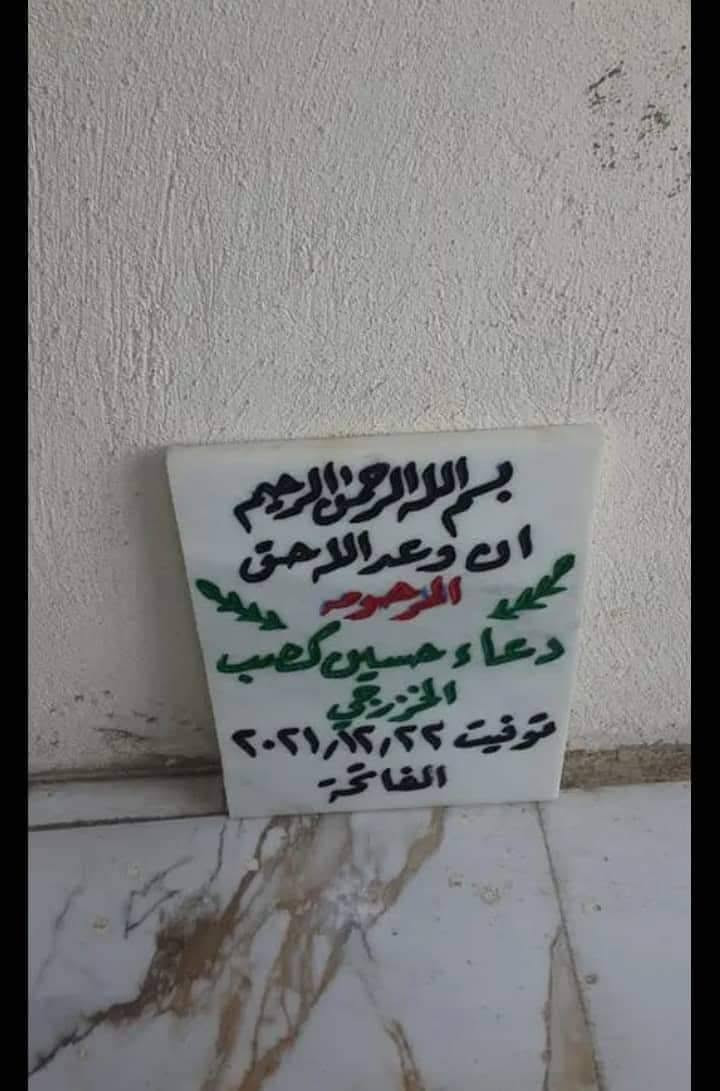 بسم الله الرحمن الرحيم
ان وعد الله حق
المرحومه
دعاء حسين كصب
الخزرجي
توفيت ٢٠٢١/١٢/٢٢
الفاتحة